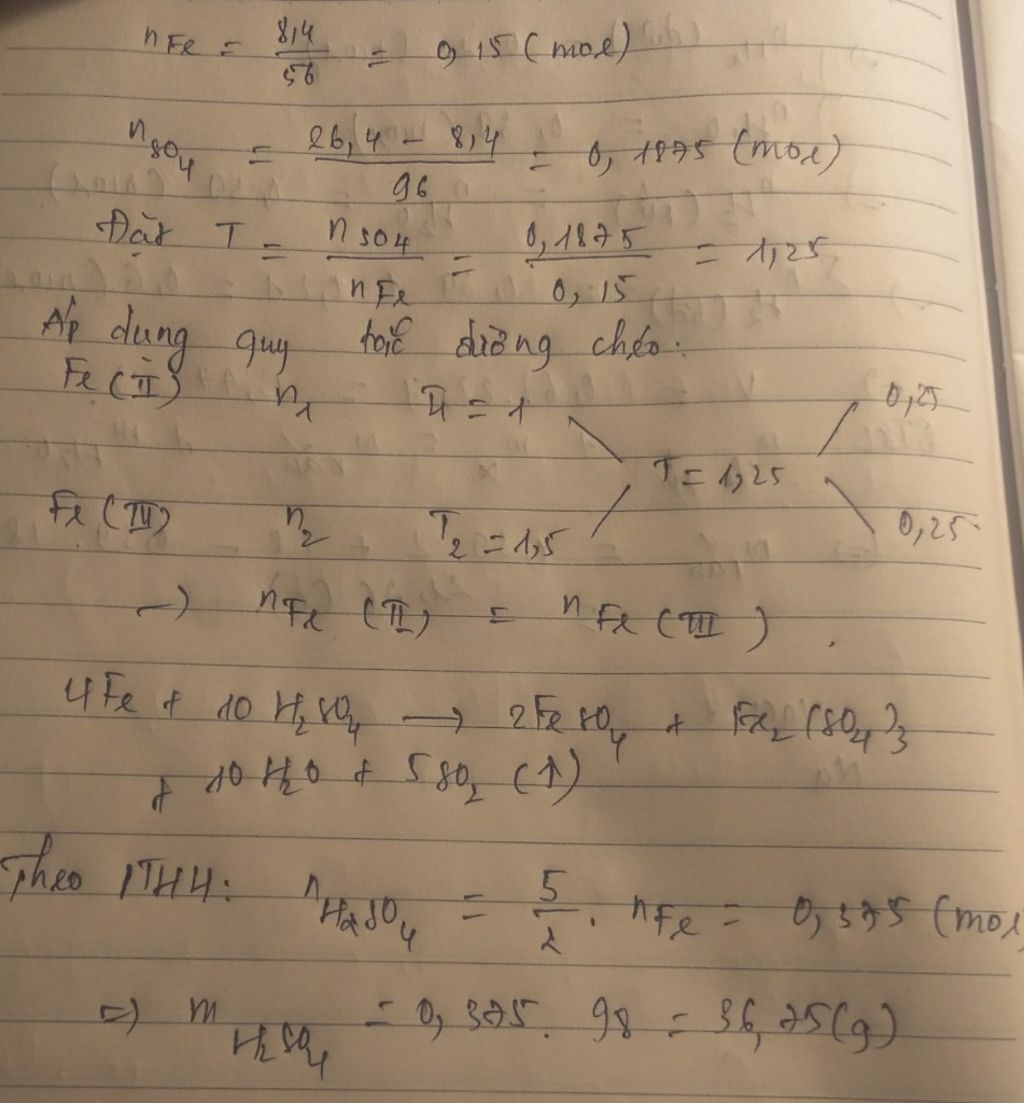 nFe = 8,4/56 = 0,15 (mol)
nSO4 = (26,4 - 8,4)/96 = 0,1875 (mol)
Đặt T = nSO4/nFe = 0,1875/0,15 = 1,25
Áp dụng quy tắc đường chéo:
Fe (II) n1 T1 = 1 0,25
T = 1,25
Fe (III) n2 T2 = 1,5 0,25
→ nFe (II) = nFe (III)
4Fe + 10 H2SO4 → 2FeSO4 + Fe2(SO4)3
+ 10 H2O + 5SO2 (↑)
Theo PTHH: nH2SO4 = 5/2 . nFe = 0,375 (mol
⇒ mH2SO4 = 0,375. 98 = 36,75(g)